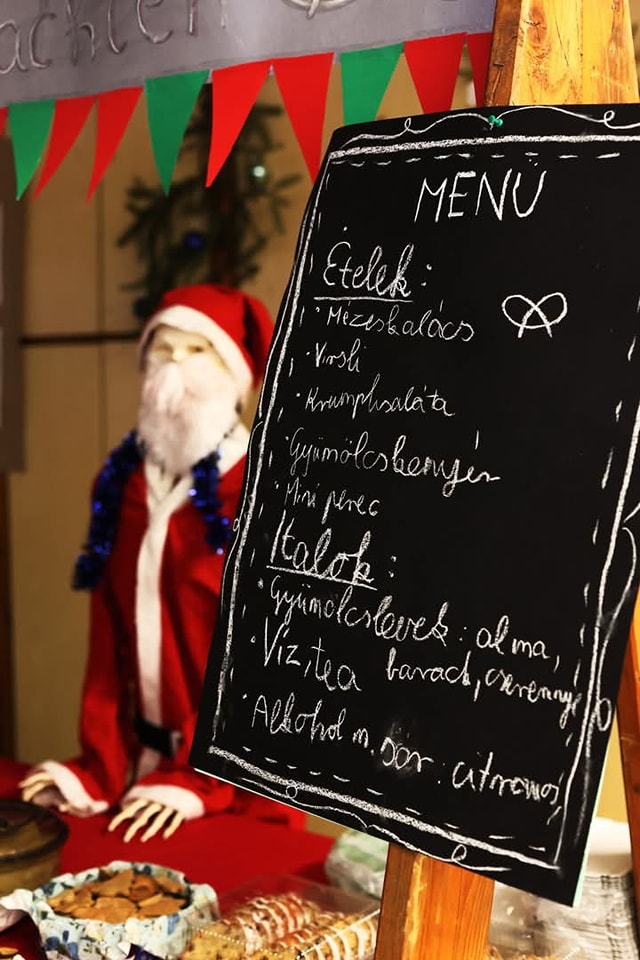 achten
MENÜ
Ételek:
• Mézeskalács
• Virsli
• Krumplisaláta
• Gyümölcskenyér
• Mini perec
Italok:
• Gyümölcslevek: alma,
barack, cseresznye
• Víz, tea
• Alkohol m. sör: citromos,